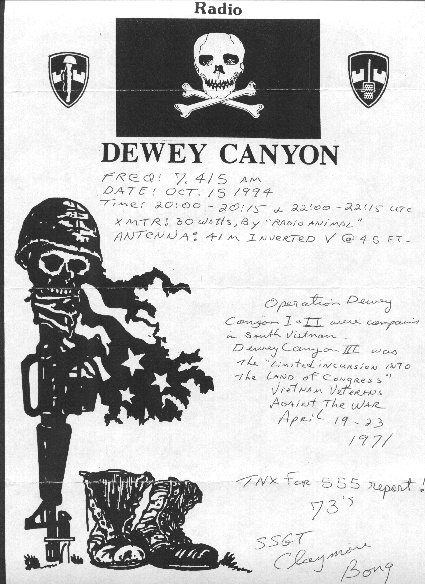 Radio
DEWEY CANYON
FREQ: 7.415 AM
DATE: OCT. 15 1994
Time: 20:00 - 20:15 & 22:00 - 22:15 UTC
XMTR: 30 Watts, By "RADIO ANIMAL"
ANTENNA: 41M INVERTED V @ 45 FT.
Operation Dewey
Canyon I & II were campains
in South Vietnam.
Dewey Canyon III was
the "Limited incursion INTO
the LAND of Congress"
VIETNAM VETERANS
AGAINST THE WAR
April 19-23
1971
TNX For 555 report!
73's
SSGT
Claymore
Bong